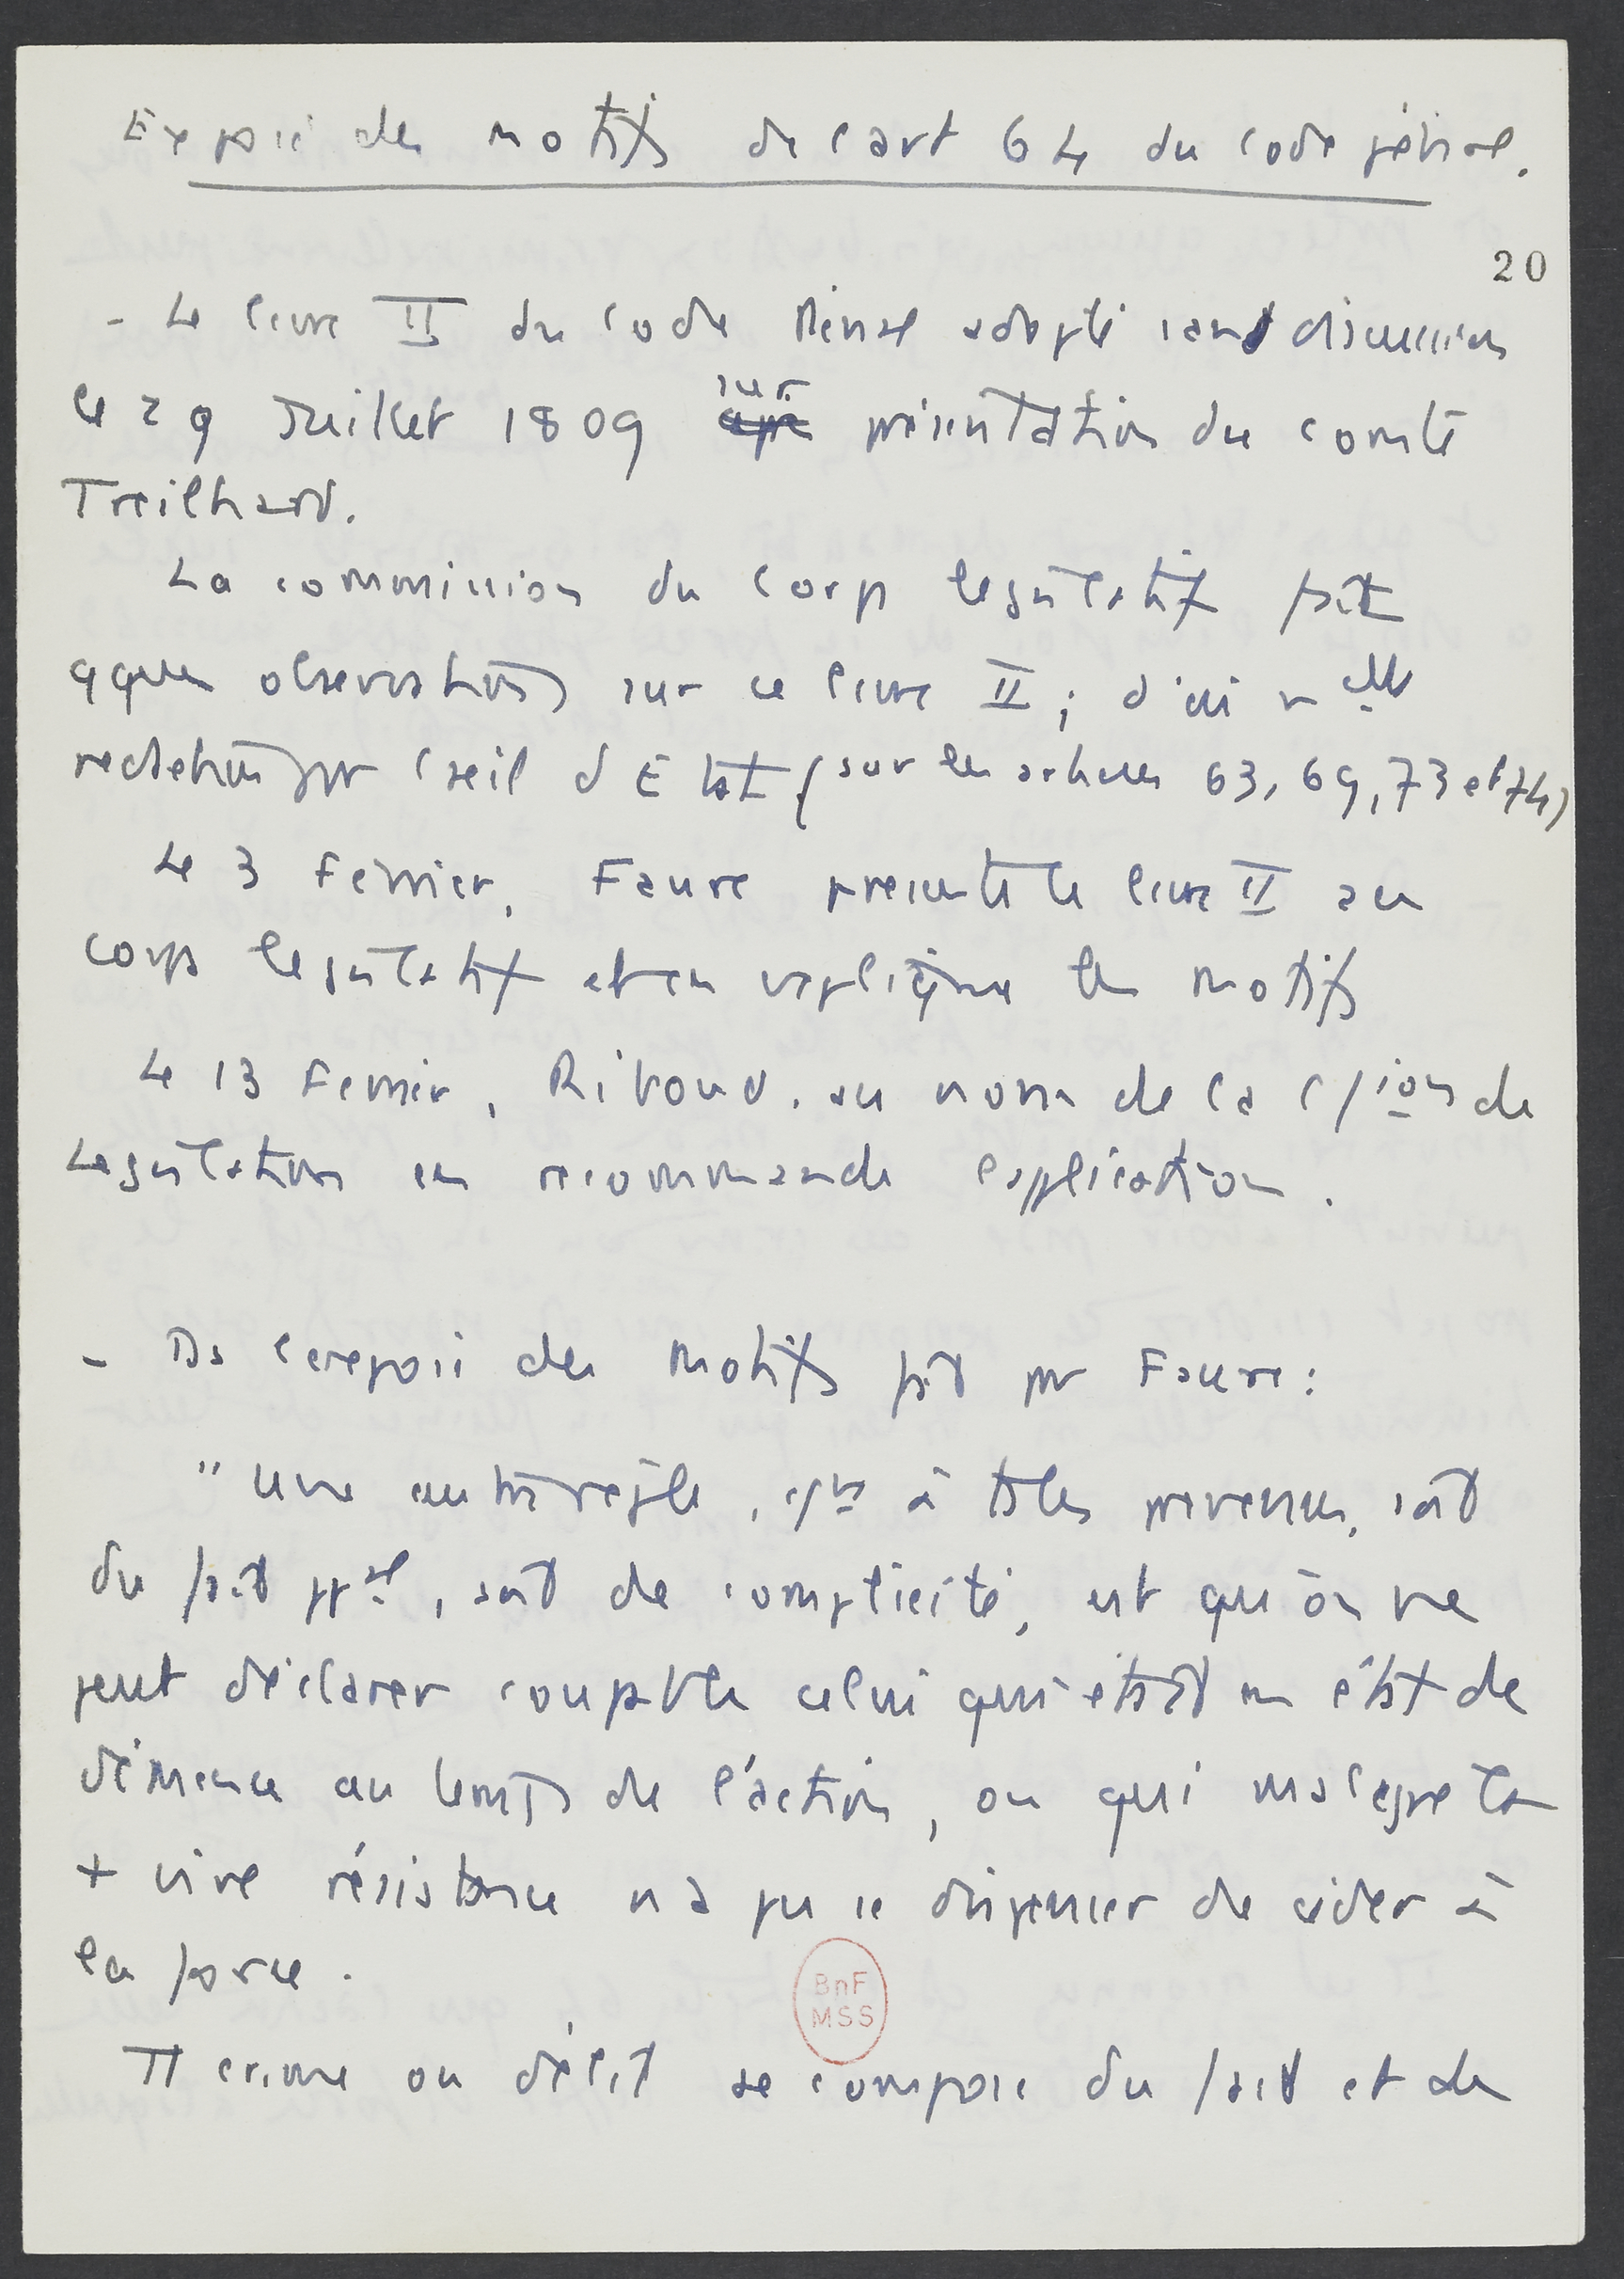 Exposé des motifs de l'art 64 du code pénal.
20
- Le livre II du Code Pénal adopté sans discussion
le 29 Juillet 1809 sur présentation du comte
Treilhard.
La commission du Corps legislatif fait
qques observations sur ce livre II ; d'où nvelle
redaction par Cseil d'Etat (sur les articles 63, 69, 73 et 74)
Le 3 Février, Faure presente le livre II au
corps legislatif et en explique les motifs
Le 13 Fevrier, Riboud, au nom de la C/ion de
Legislation en recommande l'application.
- Ds l'exposé des motifs fait par Faure :
" Une autre règle, c/ne à ts les prévenus, soit
du fait ppal, soit de complicité, est qu'on ne
peut déclarer coupable celui qui était en état de
démence au temps de l'action, ou qui malgre la
+ vive résistance n'a pu se dispenser de céder à
la force.
Tt crime ou délit se compose du fait et de
BnF
MSS